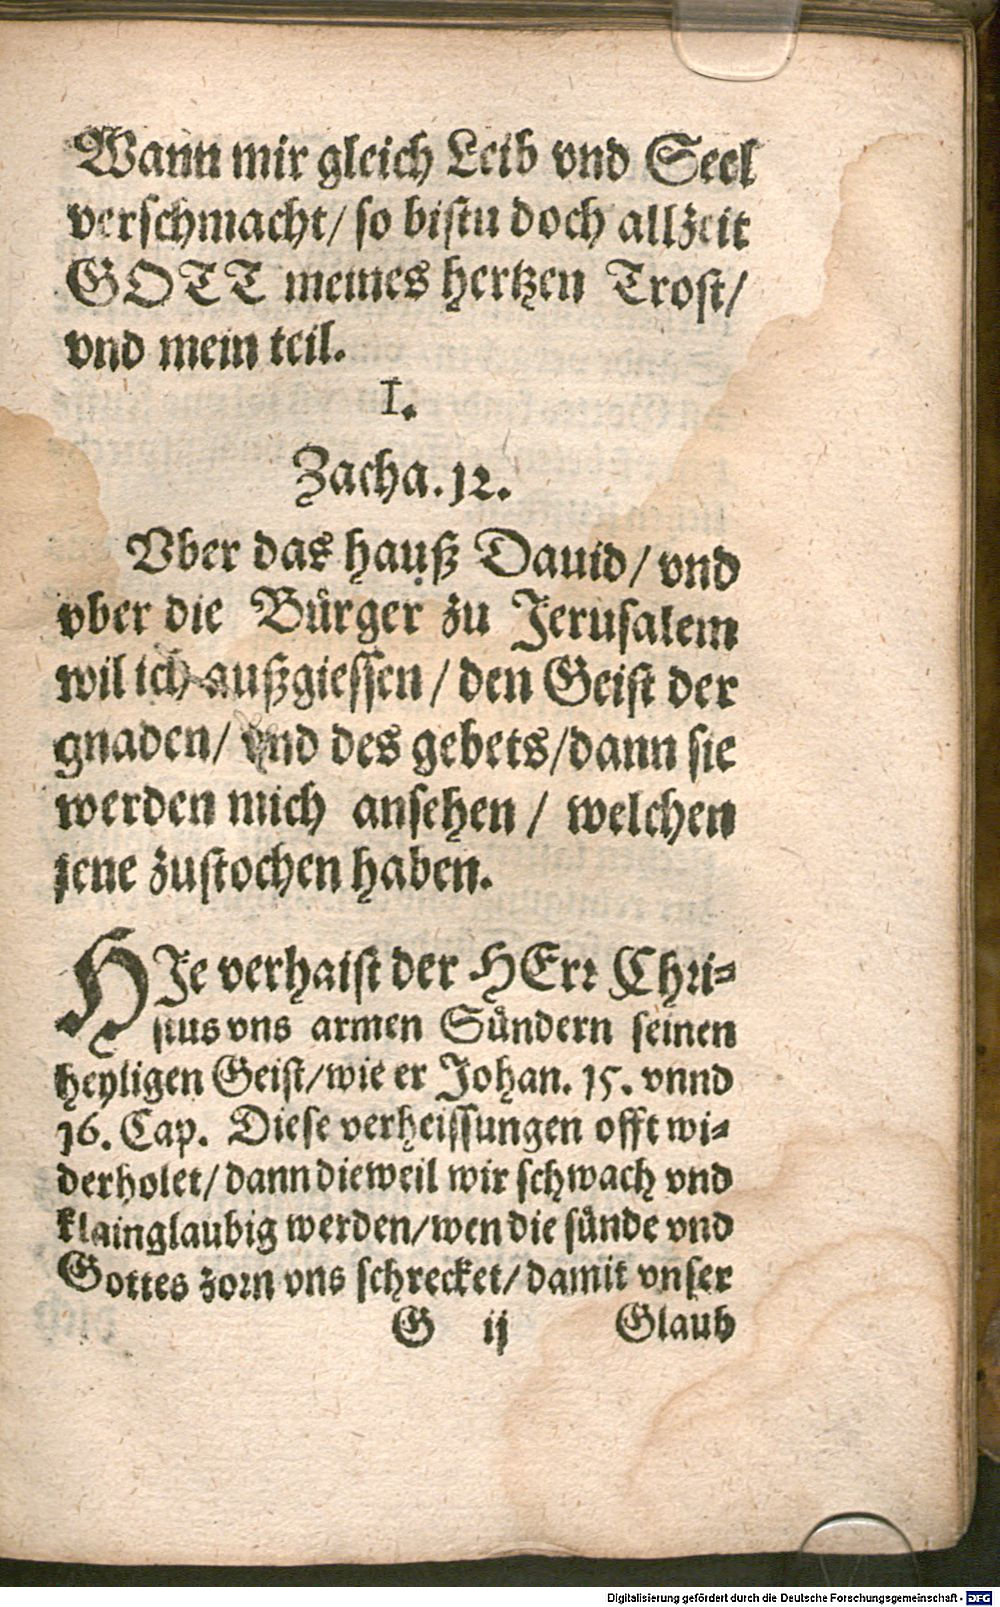 Wann mir gleich Leib vnd Seel
verschmacht/ so bistu doch allzeit
GOTT meines hertzen Trost/
vnd mein teil.
I.
Zacha. 12.
Vber das hauß Dauid/ vnd
vber die Bürger zu Jerusalem
wil ich außgiessen/ den Geist der
gnaden/ vnd des gebets/ dann sie
werden mich ansehen/ welchen
jene zustochen haben.
HIe verhaist der HErr Chri-
stus vns armen Sündern seinen
heyligen Geist/ wie er Johan. 15. vnnd
16. Cap. Diese verheissungen offt wi-
derholet/ dann dieweil wir schwach vnd
klainglaubig werden/ wen die sünde vnd
Gottes zorn vns schrecket/ damit vnser
G ij Glaub
Digitalisierung gefördert durch die Deutsche Forschungsgemeinschaft - DFG